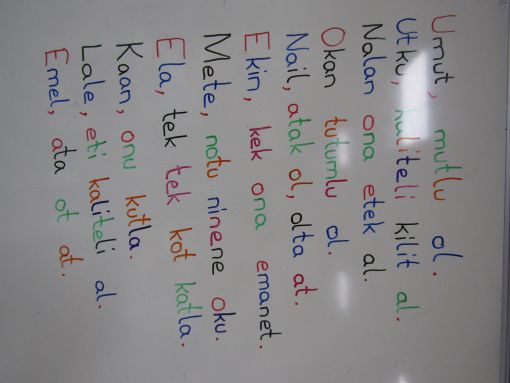 Umut, mutlu ol.
Utku, kaliteli kilit al.
Nalan ona etek al.
Okan tutumlu ol.
Nail, atak ol, olta at.
Ekin, kek ona emanet.
Mete, notu ninene oku.
Ela, tek tek kot katla.
Kaan, onu kutla.
Lale, eti kaliteli al.
Emel, ata ot at.